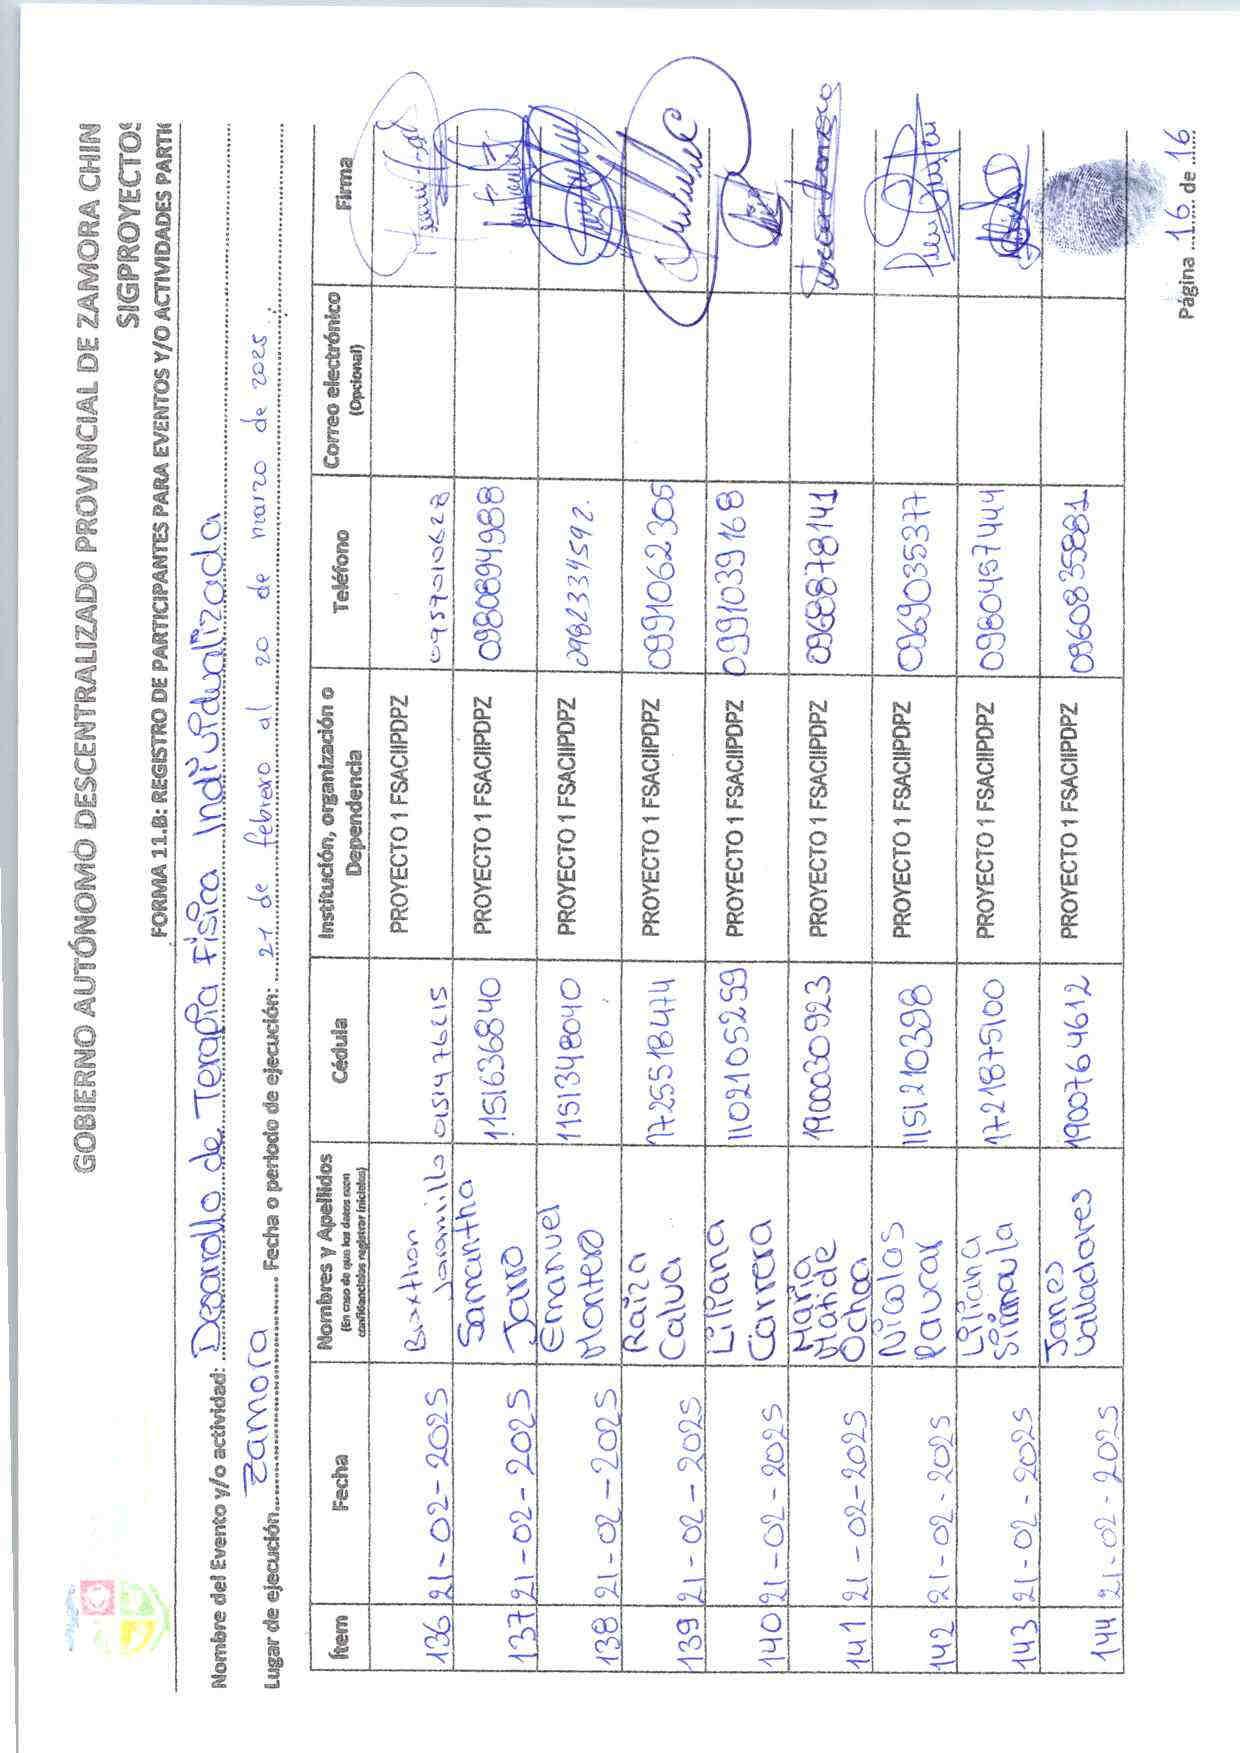 GOBIERNO AUTÓNOMO DESCENTRALIZADO PROVINCIAL DE ZAMORA CHIN
SIGPROYECTOS
FORMA 11.B: REGISTRO DE PARTICIPANTES PARA EVENTOS Y/O ACTIVIDADES PARTI
Nombre del Evento y/o actividad: Desarollo de Terapia Física Individualizada
Lugar de ejecución Zamora Fecha o periodo de ejecución: 21 de febrero al 20 de marzo de 2025
Ítem Fecha Nombres y Apellidos (En caso de que los datos sean confidenciales registrar iniciales) Cédula Institución, organización o Dependencia Teléfono Correo electrónico (Opcional) Firma
136 21-02-2025 Braxthon Jaramillo PROYECTO 1 FSACIIPDPZ 0957010628
137 21-02-2025 Samantha Jarro 1151636840 PROYECTO 1 FSACIIPDPZ 0980894988
138 21-02-2025 Emanuel Montero 1151348040 PROYECTO 1 FSACIIPDPZ 0982334592.
139 21-02-2025 Raiza Calva 1725518474 PROYECTO 1 FSACIIPDPZ 0991062305
140 21-02-2025 Liliana Carrera 1102105259 PROYECTO 1 FSACIIPDPZ 0991039168
141 21-02-2025 María Matilde Ochoa 1900030923 PROYECTO 1 FSACIIPDPZ 0968878141
142 21-02-2025 Nicolas Paucar 1151210398 PROYECTO 1 FSACIIPDPZ 0969035377
143 21-02-2025 Liliana 1721875100 PROYECTO 1 FSACIIPDPZ 0980457444
144 21-02-2025 Janes Valladares 1900764612 PROYECTO 1 FSACIIPDPZ 0960835881
Página 16 de 16